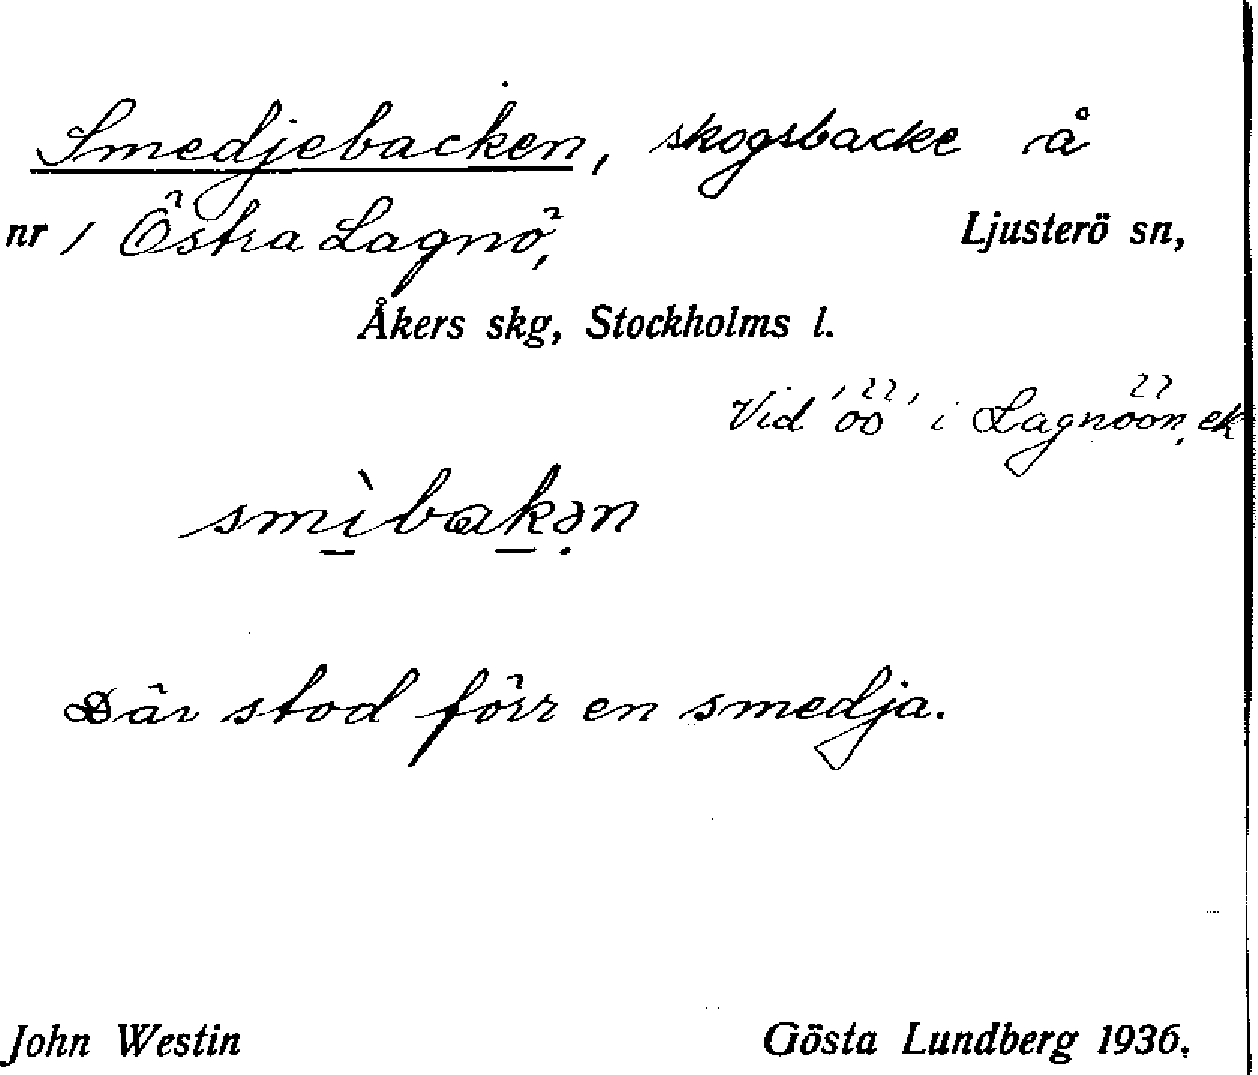 Smedjebacken, skogsbacke å
nr 1 Östra Lagnö, Ljusterö sn,
Åkers skg, Stockholms l.
Vid 'öö' i Lagnöön, ek
smìbakən
Där stod förr en smedja.
John Westin Gösta Lundberg 1936.